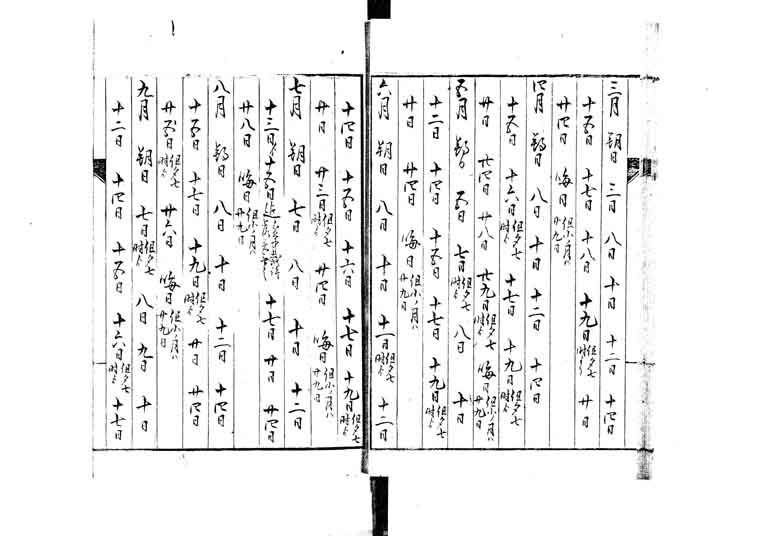 三月 朔日 三日 八日 十日 十二日 十四日
十五日 十七日 十八日 十九日但夕七時ゟ 廿日
廿四日 晦日但小ノ月ハ廿九日
四月 朔日 八日 十日 十二日 十四日
十五日 十六日但夕七時ゟ 十七日 十九日但夕七時ゟ
廿日 廿四日 廿八日 廿九日但夕七時ゟ 晦日但小ノ月ハ廿九日
五月 朔日 五日 七日但夕七時ゟ 八日 十日
十二日 十四日 十五日 十七日 十九日但夕七時ゟ
廿日 廿四日 晦日但小ノ月ハ廿九日
六月 朔日 八日 十日 十一日但夕七時ゟ 十二日
十四日 十五日 十六日 十七日 十九日但夕七時ゟ
廿日 廿三日但夕七時ゟ 廿四日 晦日但小ノ月ハ廿九日
七月 朔日 七日 八日 十日 十二日
十三日ゟ十五日迄 十七日 廿日 廿四日
廿八日 晦日但小ノ月ハ廿九日
八月 朔日 八日 十日 十二日 十四日
十五日 十七日 十九日但夕七時ゟ 廿日 廿四日
廿五日但夕七時ゟ 廿六日 晦日但小ノ月ハ廿九日
九月 朔日 七日但夕七時ゟ 八日 九日 十日
十二日 十四日 十五日 十六日但夕七時ゟ 十七日